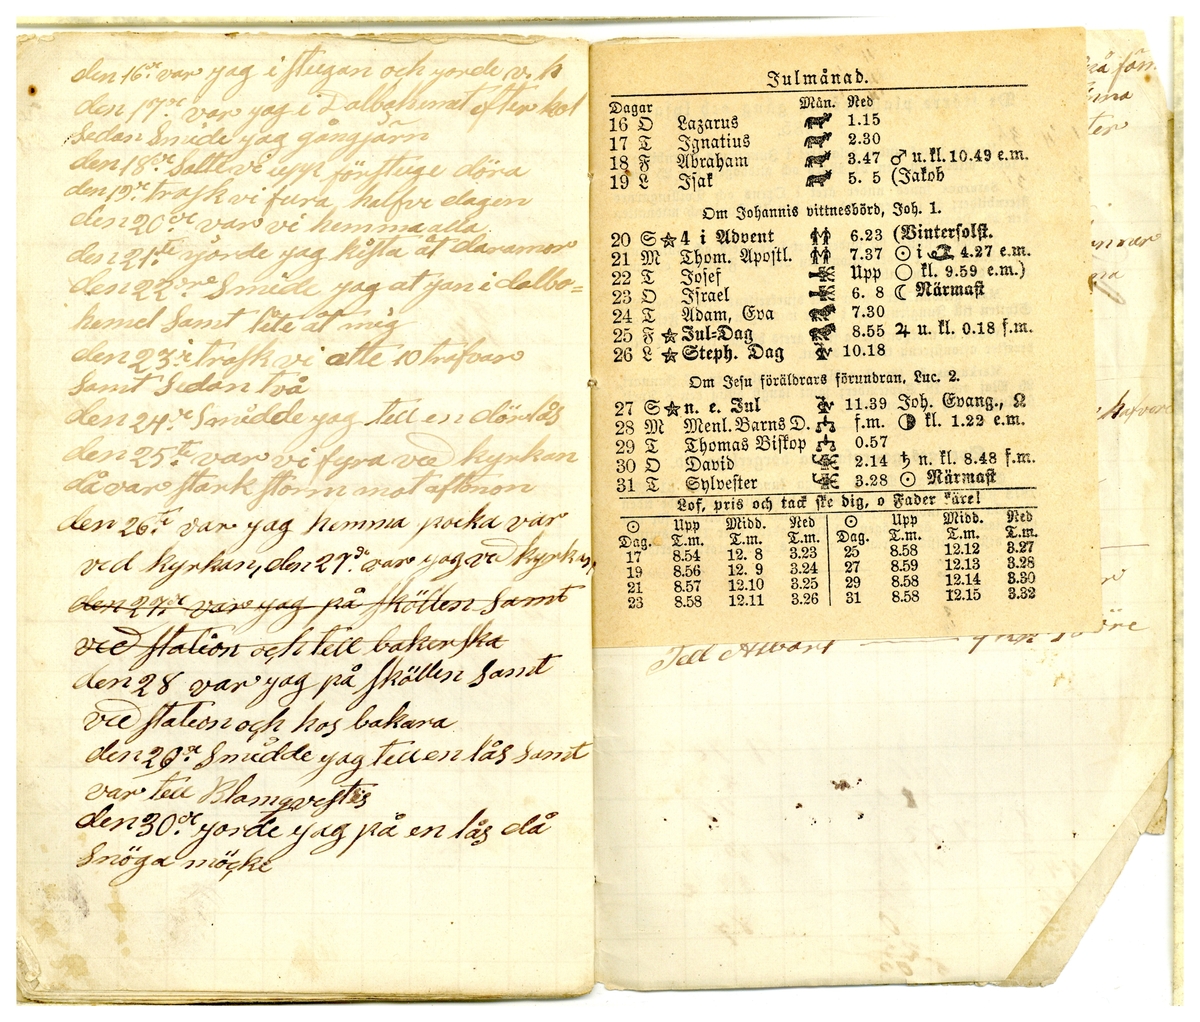 den 16de var yag i stugan och yorde v. h
den 17de var yag i Dalbohemet efter kol
sedan Smide yag gångjärn
den 18de Satte vi upp förstuge döra
den 19de trask vi fura, halfve dagen
den 20de var vi hemma alla
den 21te yörde yag kista åt daramor
den 22dre Smide yag at yan i dalbo=
hemet Samt lite åt mig
den 23i trask vi otte 10 trafvar
Samt Sedan två
den 24de Smidde yag tell en dörlås
den 25te var vi fyra ved kyrkan
då var stark störm mot aftonon
den 26te var yag hemma pocka var
ved kyrkan, den 27de var yag ved kyrkan,
den 27de var yag på skällen Samt
ved station och tell bakerska
den 28 var yag på skällen Samt
ved station och hos bakara
den 29de Smidde yag tell en lås Samt
var tell Blomqvestis
den 30de yorde yag på en lås då
Snöga möcke
Julmånad.
Dagar Mån. Ned
16 O Lazarus 1.15
17 T Ignatius 2.30
18 F Abraham 3.47 ♂ u. kl. 10.49 e.m.
19 L Isak 5. 5 (Jakob
Om Johannis vittnesbörd, Joh. 1.
20 S ★ 4 i Advent 6.23 (Vintersolst.
21 M Thom. Apostl. 7.37 ☉ i ♑ 4.27 e.m.
22 T Josef Upp ○ kl. 9.59 e.m.)
23 O Israel 6. 8 ☾ Närmast
24 T Adam, Eva 7.30
25 F ★ Jul=Dag 8.55 ♃ u. kl. 0.18 f.m.
26 L ★ Steph. Dag 10.18
Om Jesu föräldrars förundran, Luc. 2.
27 S ★ n. e. Jul 11.39 Joh. Evang., ☊
28 M Menl. Barns D. f.m. ◑ kl. 1.22 e.m.
29 T Thomas Biskop 0.57
30 O David 2.14 ♄ n. kl. 8.48 f.m.
31 T Sylvester 3.28 ☉ Närmast
Lof, pris och tack ske dig, o Fader käre!
☉ Upp Midd. Ned ☉ Upp Midd. Ned
Dag. T.m. T.m. T.m. Dag. T.m. T.m. T.m.
17 8.54 12. 8 3.23 25 8.58 12.12 3.27
19 8.56 12. 9 3.24 27 8.59 12.13 3.28
21 8.57 12.10 3.25 29 8.58 12.14 3.30
23 8.58 12.11 3.26 31 8.58 12.15 3.32
Tell